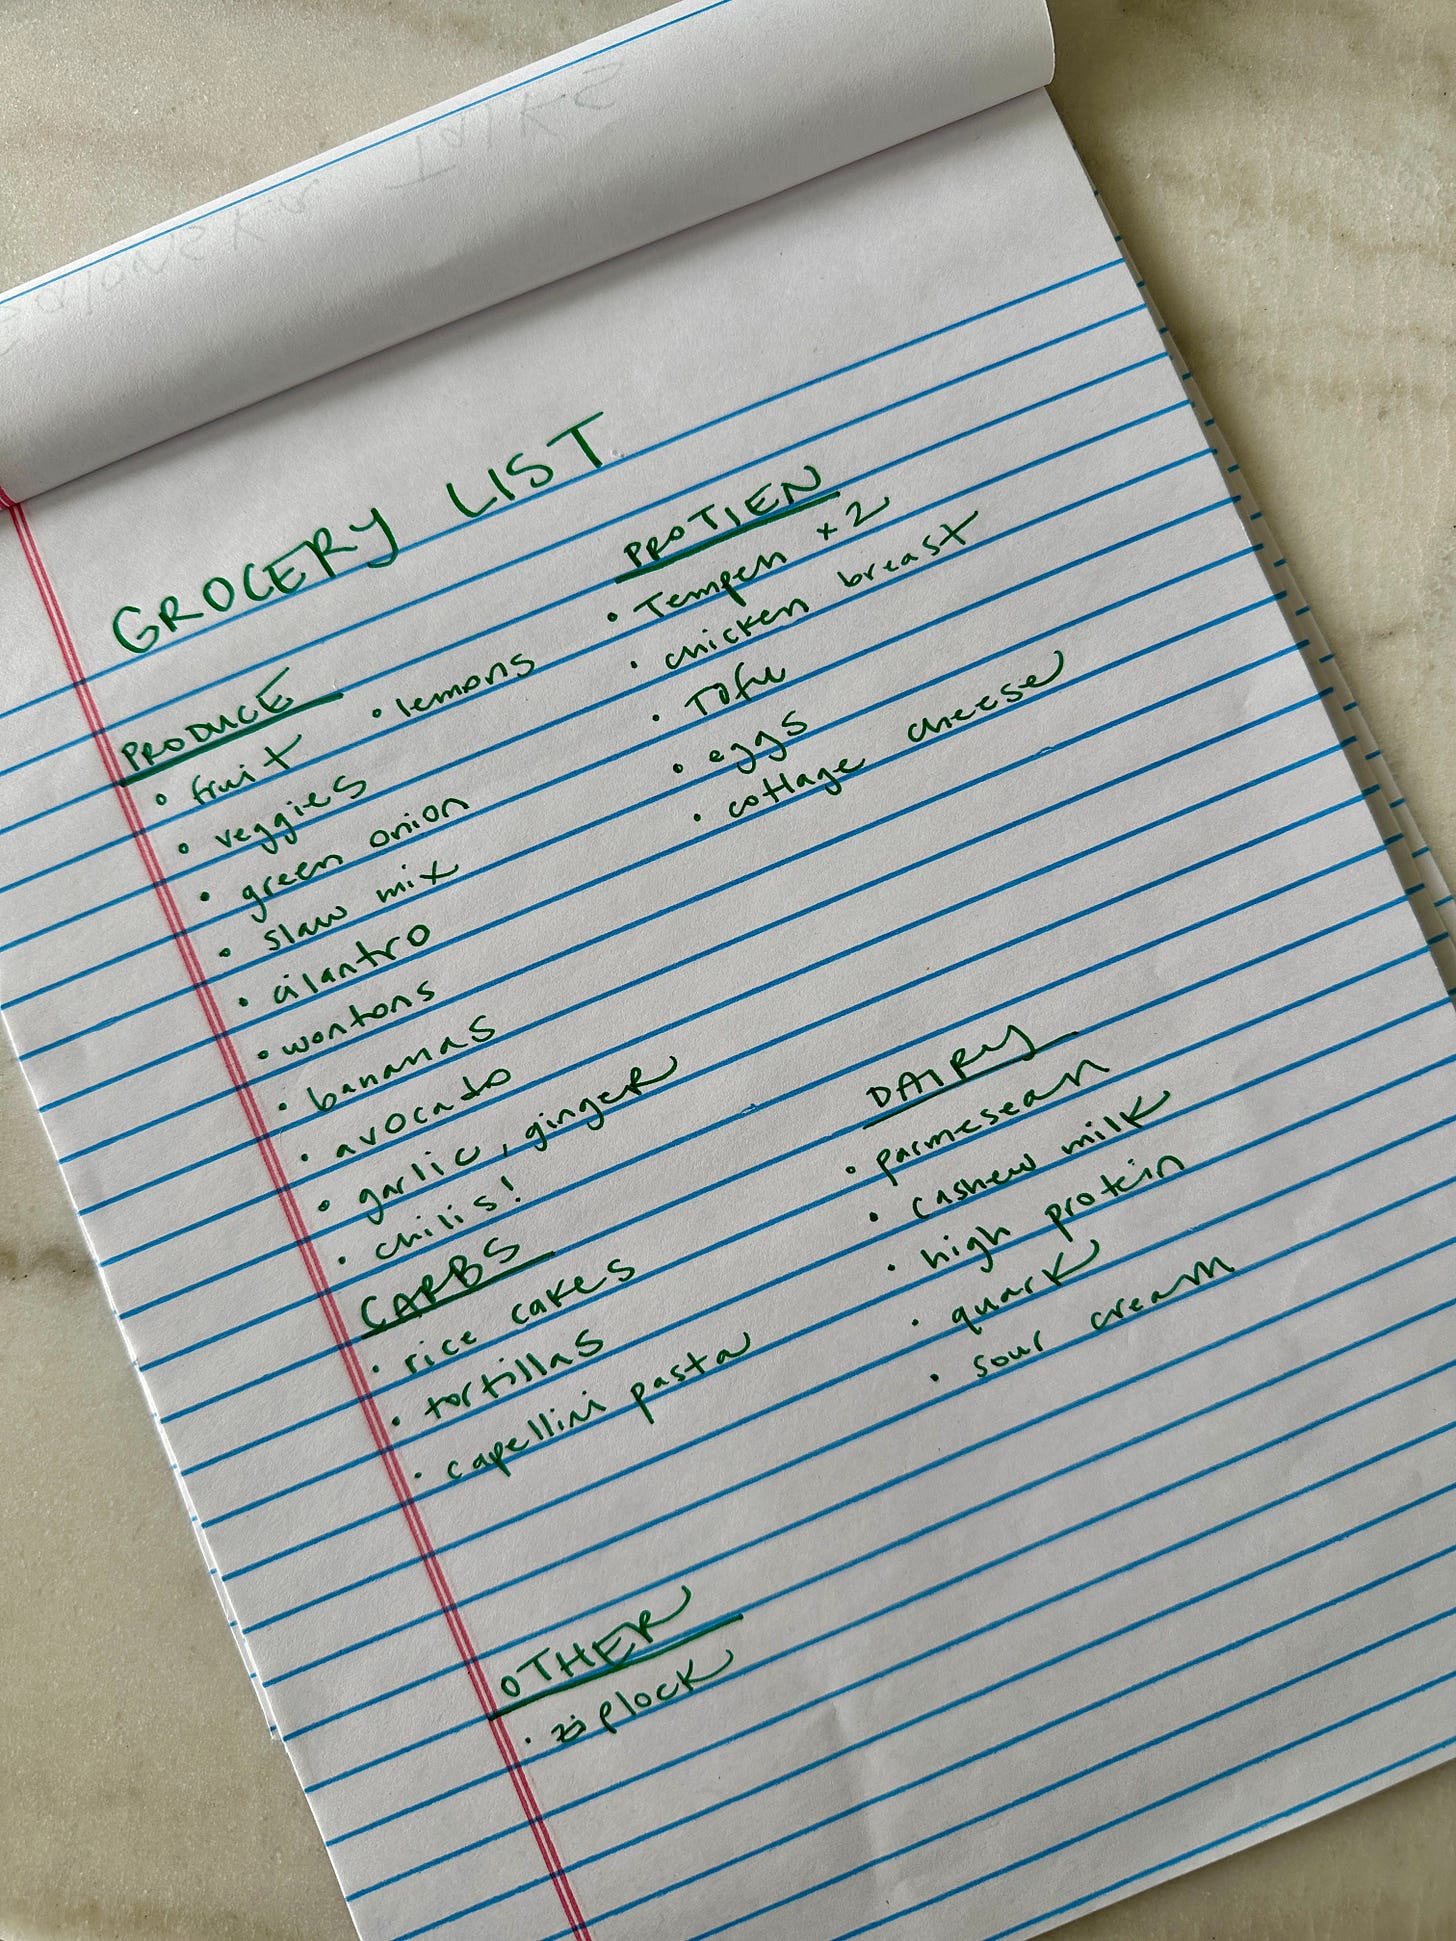 GROCERY LIST
PRODUCE
• fruit
• lemons
• veggies
• green onion
• slaw mix
• cilantro
• wontons
• bananas
• avocado
• garlic, ginger
• chilis!
CARBS
• rice cakes
• tortillas
• capellini pasta
PROTIEN
• Tempeh x2
• chicken breast
• Tofu
• eggs
• cottage cheese
DAIRY
• parmesean
• cashew milk
• high protein
• quark
• sour cream
OTHER
• ziplock